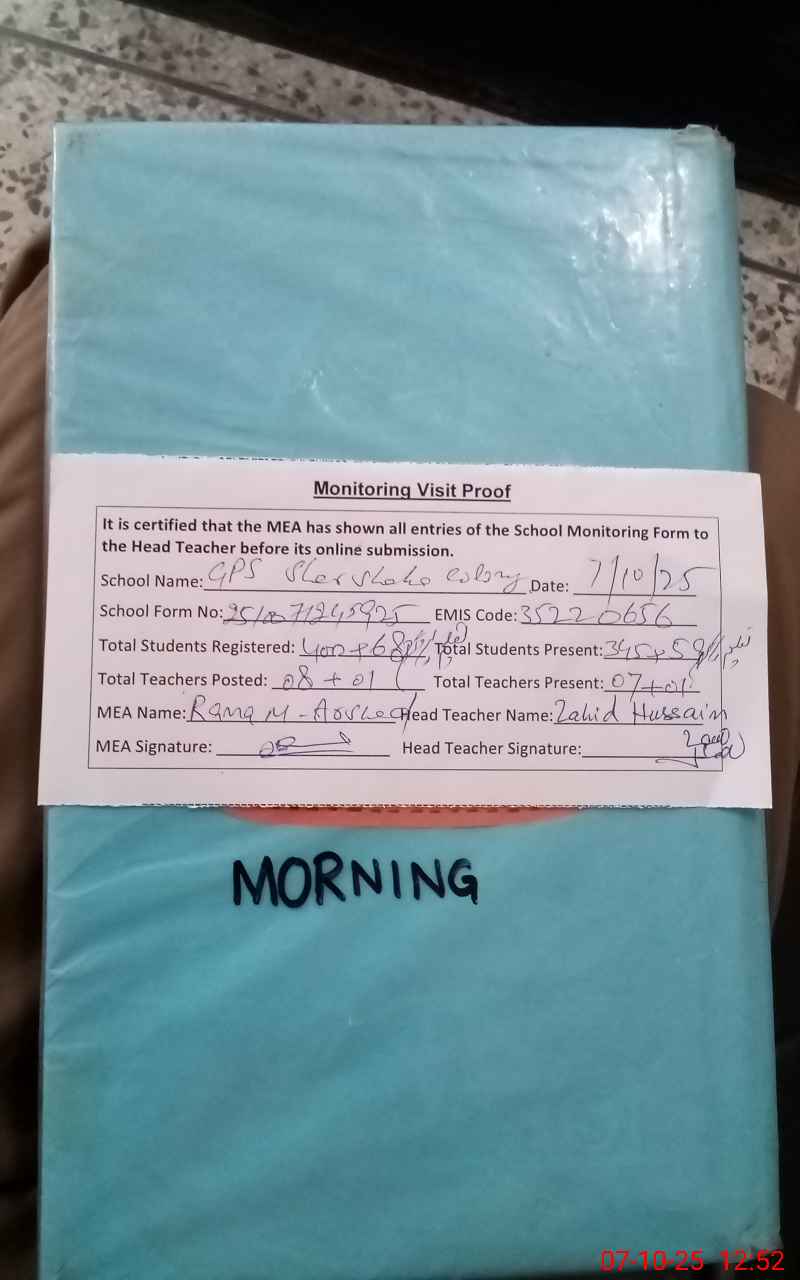 Monitoring Visit Proof
It is certified that the MEA has shown all entries of the School Monitoring Form to
the Head Teacher before its online submission.
School Name: GPS Sher Shaha Colony Date: 7/10/25
School Form No: EMIS Code: 35220656
Total Students Registered: 400+68 Total Students Present: 345+59
Total Teachers Posted: 08+01 Total Teachers Present: 07+01
MEA Name: Rana M-Arshed Head Teacher Name: Zahid Hussain
MEA Signature: Head Teacher Signature:
MORNING
07-10-25 12:52